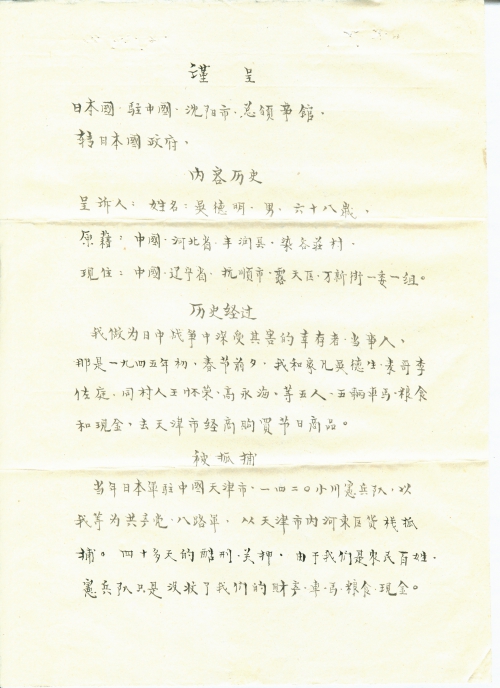 謹呈
日本國·駐中國·沈阳市·总領事館·
转日本國政府·
内容历史
呈诉人: 姓名: 吳德明·男·六十八歲,
原藉: 中國·河北省·丰润县·染各莊村·
現住: 中國·辽宁省·抚順市·露天区·万新街一委一组。
历史经过
我做为日中战争中深受其害的幸存者·当事人,
那是一九四五年初,春节前夕,我和家兄吳德生·表哥李
佐庭,同村人王怀荣·高永海,等五人·五輌車马·粮食
和现金,去天津市经商购買节日商品。
被抓捕
当年日本军駐中國天津市·一四二〇小川憲兵队,以
我等为共产党·八路军,从天津市内河東区货栈抓
捕。四十多天的酷刑·关押,由于我们是农民百姓,
憲兵队只是没收了我们的财产·車·马·粮食·现金。